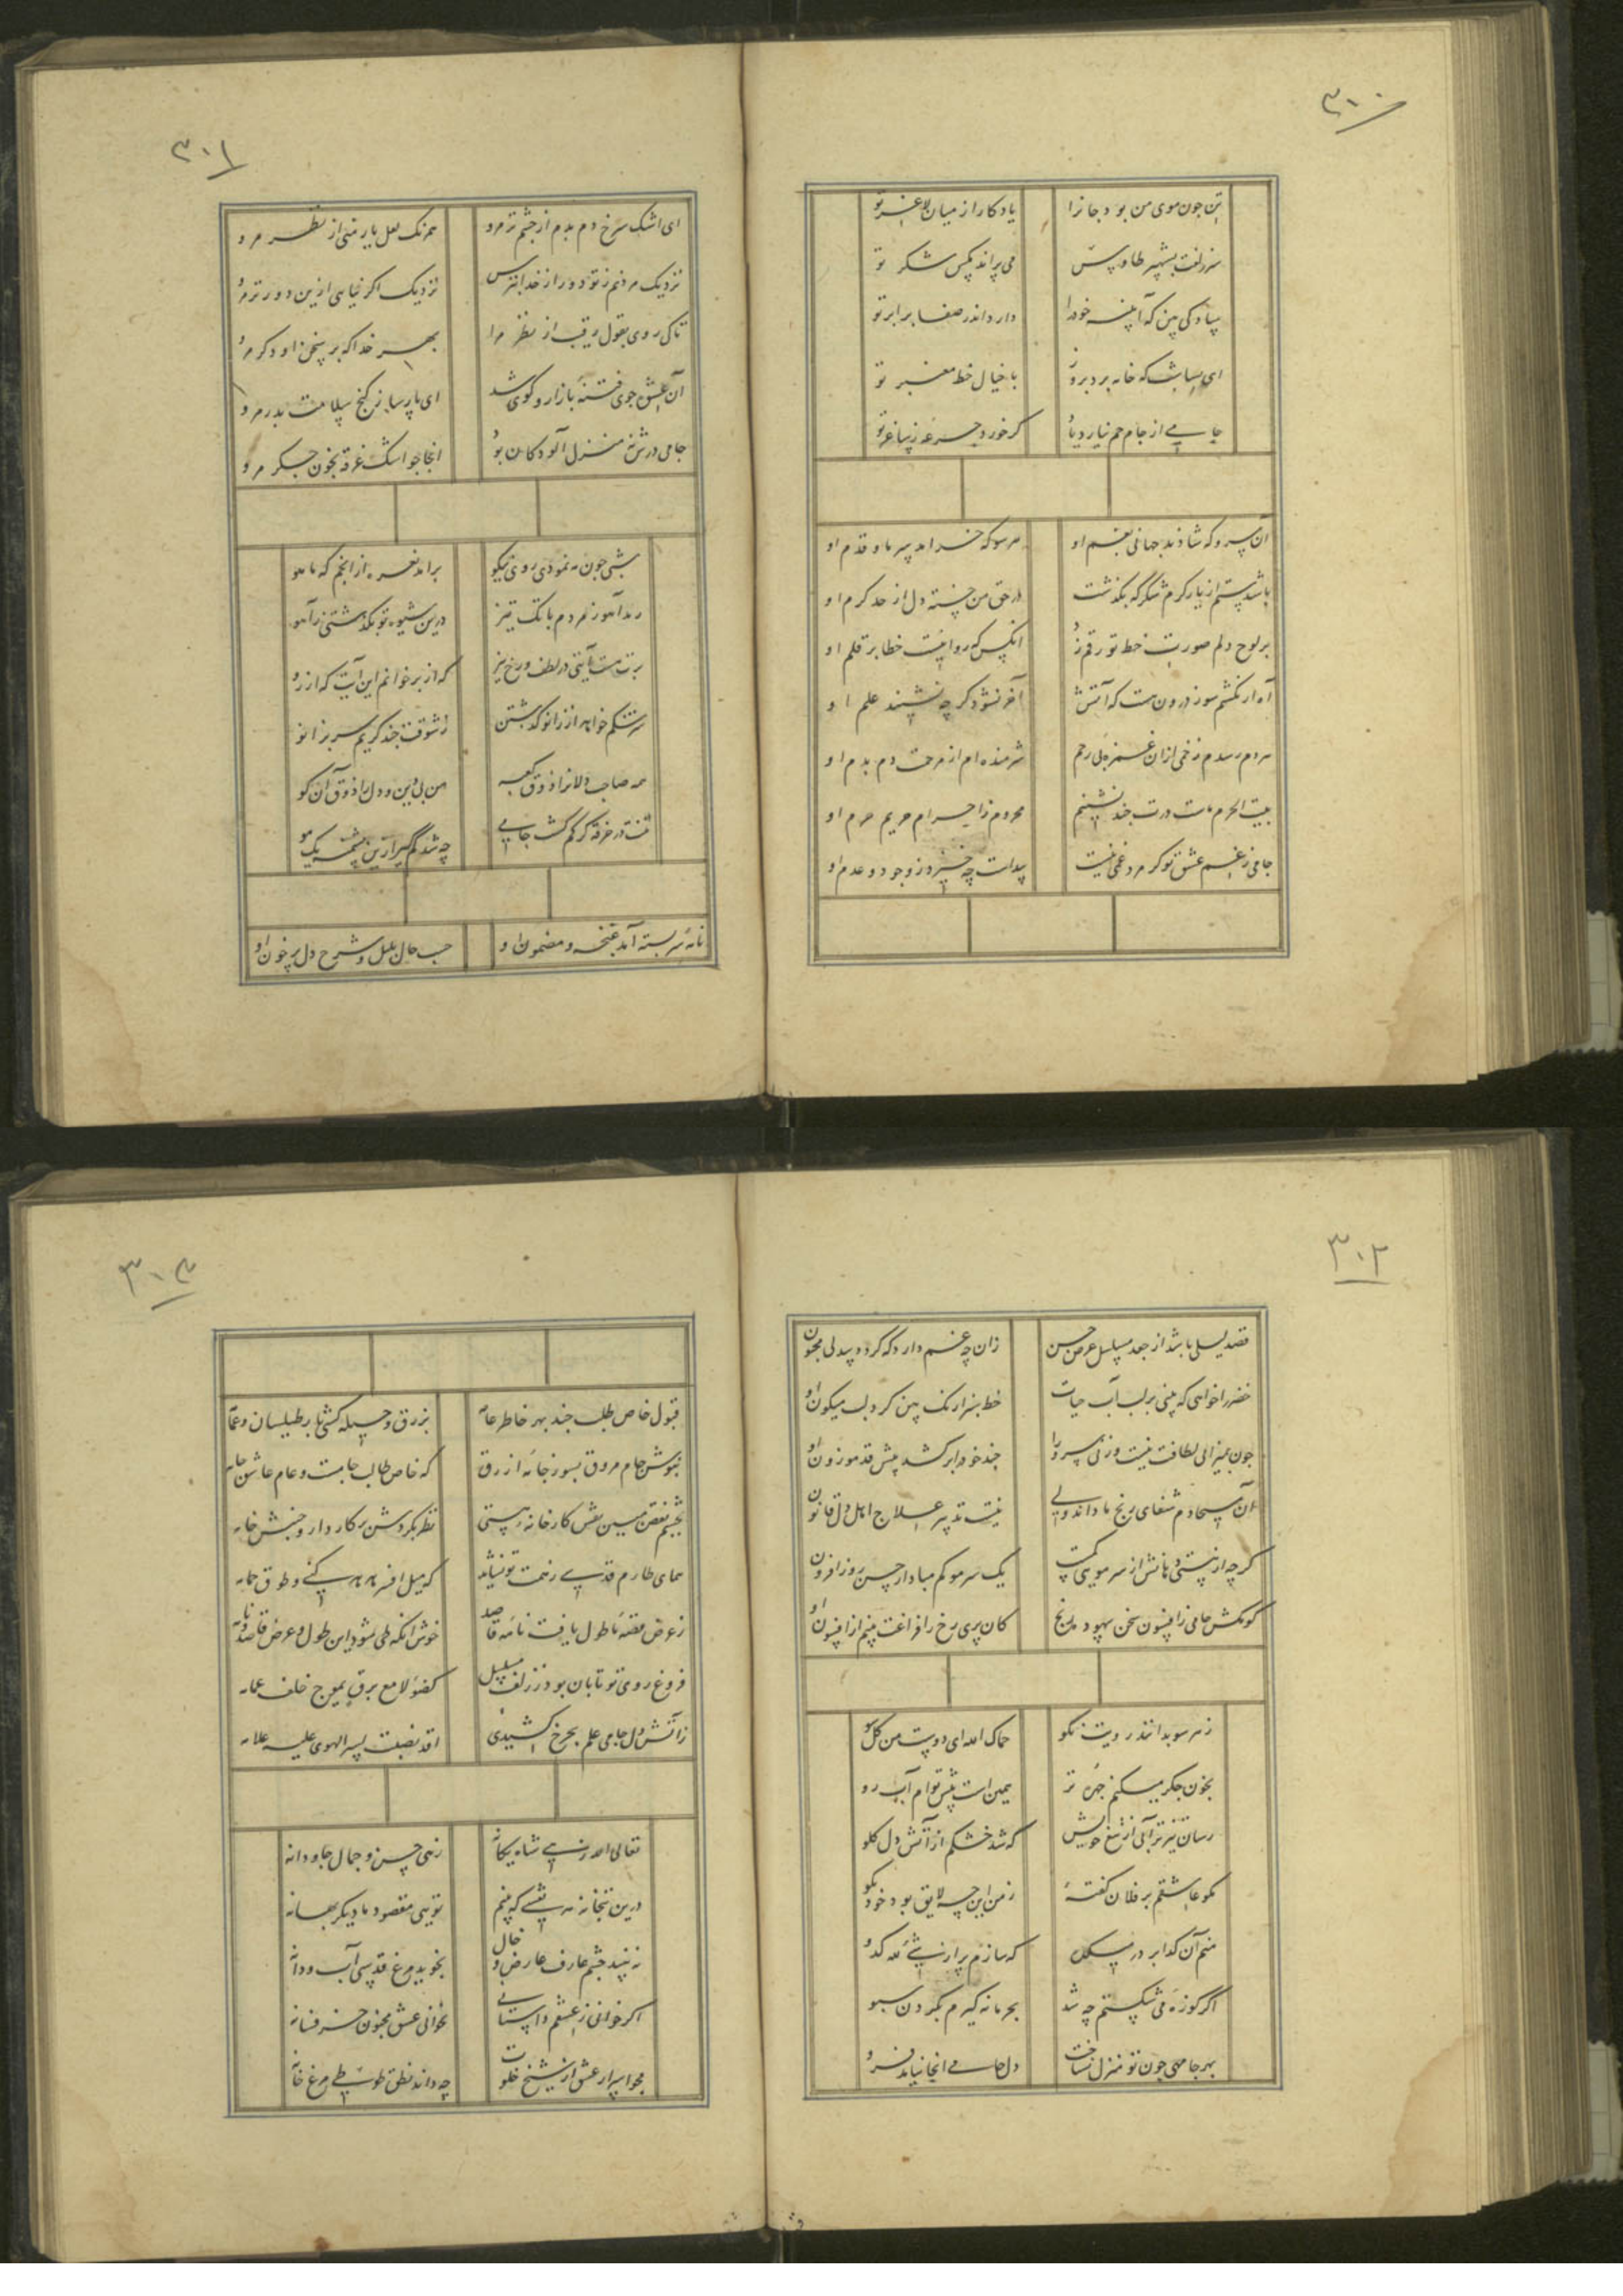 ۳۰۰
تن چون موی من بود جانرا یادگار از میان لاغر تو
سر زلفت بشهپر طاوس می پراند مکس ز شکر تو
ساده کی بین که آینه خود را دارد اندر صفا برابر تو
با خیال خط معنبر تو
جامی از جام جم نیارد یاد گر خورد جرعه ز ساغر تو
آن سرو که شادند جهانی بغم او هر سو که خرامد سر ما و قدم او
باشد ستم از یار کرم شکر که بگذشت در حق من خسته دل از حد کرم او
بر لوح دلم صورت خط تو رقم زد انکس که روا نیست خطا بر قلم او
آه ار نکشم سوز درون هست که آتش آخر نشود گر چه نشیند علم او
هر دم رسدم زخمی ازان غمزه بی رحم شرمنده ام از مرحمت دم بدم او
بیت الحرم ماست درت چند نشینم محروم ز احرام حریم حرم او
جامی ز غم عشق تو گر مرد غمی نیست پیداست چه خیزد ز وجود و عدم او
۳۰۱
ای اشک سرخ دم بدم از چشم تر مرو همرنک لعل یار منی از نظر مرو
نزدیک مردنم ز تو دور از خدا بترس نزدیک اگر نیایی ازین دورتر مرو
تا کی روی بقول رقیب از نظر مرا بهر خدا که بر سخن او دگر مرو
آن عشوه جوی فتنه بازار و کوی شد ای پارسا ز کنج سلامت بدر مرو
جامی درش نه منزل آلودگان بود انجا چو اشک غرقه بخون جگر مرو
شبی چون مه نمودی روی نیکو برامد نعره از انجم که یا هو
رمد آهو ز مردم بانک تیز درین شیوه تو بگذشتی ز آهو
که از بر خوانم این آیت که از رو
سرشکم خواهد از زانو گذشتن ز شوقت چند گریم سر بزانو
همه صاحب دلانرا ذوق کعبه من بی دین و دل را ذوق آن کو
تنت در خرقه گر گم گشت جامی چه شد گم گیر ازین پشمینه یک مو
نامه سربسته آمد غنچه و مضمون او حسب حال بلبل و شرح دل پر خون او
۳۰۲
قصد لیلی باشد از جعد مسلسل عرض حسن زان چه غم دارد که گردد بیدلی مجنون او
خضر را خواهی که بینی بر لب آب حیات خط سبز ارنک بین گرد لب میگون او
چون بمیزان لطافت نیست وزنی سرو را چند خود را بر کشد پیش قد موزون او
آن مسیحا دم شفای رنج ما داند ولی نیست تدبیر علاج اهل دل قانون او
گر چه از نیستی دهانش از سر مویی کمست یک سر مو کم مبادا از حسن روز افزون او
گو مکش جامی ز افسون سخن بیهوده رنج کان پری رخ را فراغت بینم از افسون او
ز هر سو بد انند رویت نکو حماک الله ای دوست من کل سو
بخون جگر میکنم چهره تر همین است پیش تو ام آب رو
رسان تیز تر آبی از تیغ خویش که شد خشکم از آتش دل گلو
مگو عاشقم بر فلان گفتهٔ ز من این چه لایق بود خود بگو
منم آن گدا بر در میکده که سازم پر از می کدو
اگر کوزه می شکستم چه شد بجرمانه گیرم بگردن سبو
بهر جا مهی چون تو منزل نساخت دل جامی انجا نیاید فرو
۳۰۳
قبول خاص طلب چند بهر خاطر عامه بزرق و حیله کشی بار طیلسان و عمامه
بنوش جام مروق بسوز جامه ازرق که خاص طالب جامست و عام عاشق جامه
بچشم نقص مبین نقش کارخانه هستی نظر بگردش پرکار دار و جنبش خامه
همای طارم قدسی ز همت تو نشاید که میل افسر هدهد کنی و طوق حمامه
ز عرض قصه ما طول یافت نامه قاصد خوش انکه طی شود این طول و عرض قاصد و نامه
فروغ روی تو تابان بود ز زلف مسلسل کضوء لامع برق یموج خلف غمامه
ز آتش دل جامی علم بچرخ کشیدی لقد نصبت لسر الهوی علیه علامه
تعالی الله زهی شاه یگانه زهی حسن و جمال جاودانه
درین بتخانه نه نقشی که بینم تویی مقصود ما دیگر بهانه
نه بیند چشم عارف عارض و خال نجوید مرغ قدسی آب و دانه
اگر خوانی ز عشقم داستانی نخوانی عشق مجنون جز فسانه
مجو اسرار عشق از شیخ خلوت چه داند نطق طوطی مرغ خانه